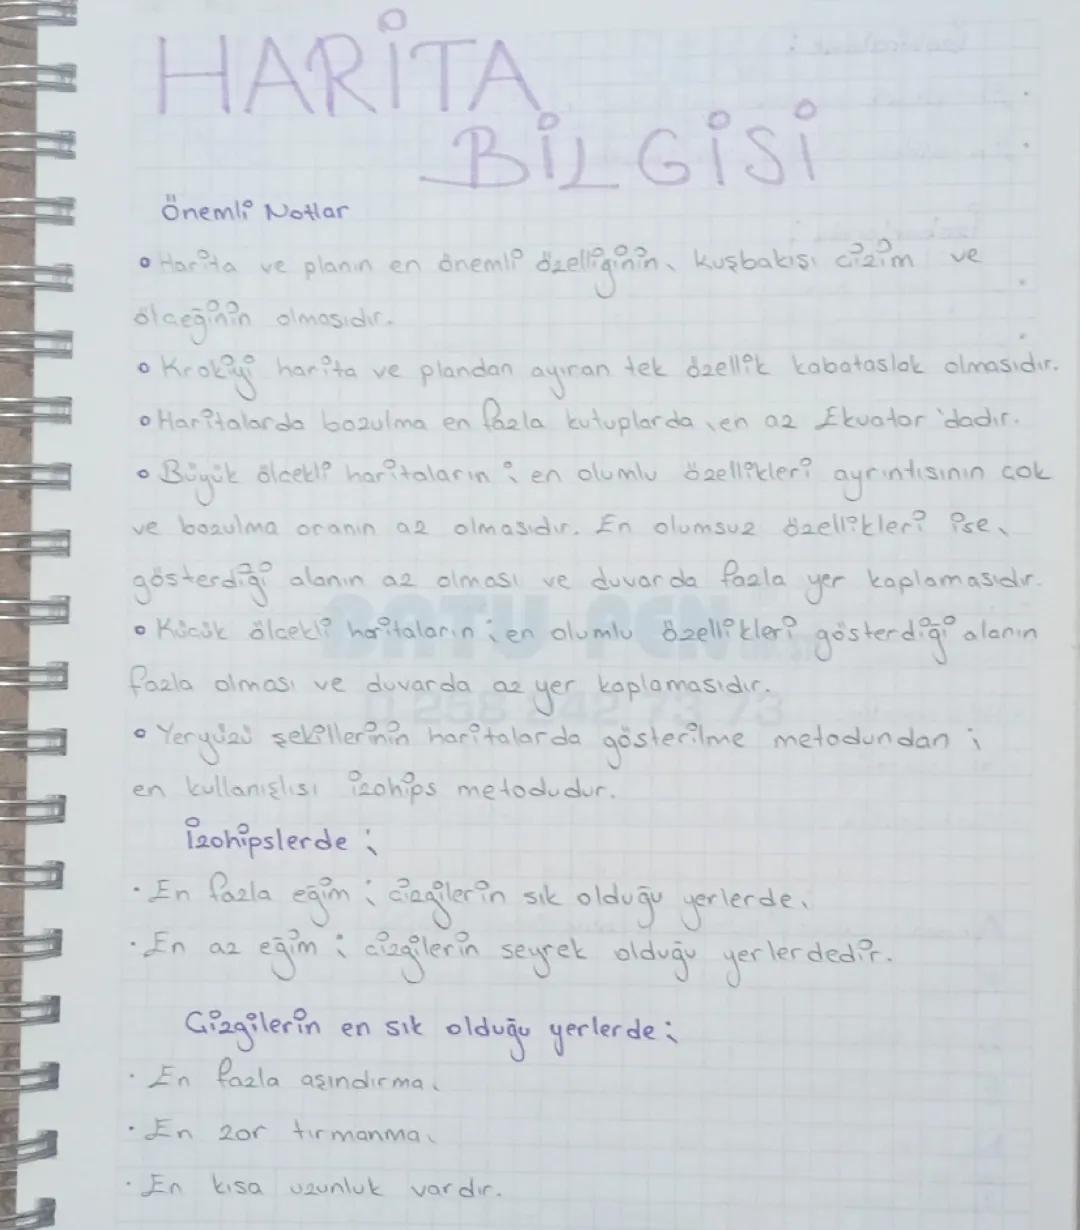 HARİTA
BİLGİSİ
Önemli Notlar
• Harita ve planın en önemli özelliğinin, kuşbakışı çizim ve
ölçeğinin olmasıdır.
• Krokiyi harita ve plandan ayıran tek özellik kabataslak olmasıdır.
• Haritalarda bozulma en fazla kutuplarda, en az Ekvator'dadır.
• Büyük ölçekli haritaların ; en olumlu özellikleri ayrıntısının çok
ve bozulma oranın az olmasıdır. En olumsuz özellikleri ise,
gösterdiği alanın az olması ve duvarda fazla yer kaplamasıdır.
• Küçük ölçekli haritaların ; en olumlu özellikleri gösterdiği alanın
fazla olması ve duvarda az yer kaplamasıdır.
• Yeryüzü şekillerinin haritalarda gösterilme metodundan ;
en kullanışlısı izohips metodudur.
İzohipslerde ;
· En fazla eğim ; çizgilerin sık olduğu yerlerde,
· En az eğim ; çizgilerin seyrek olduğu yerlerdedir.
Çizgilerin en sık olduğu yerlerde ;
· En fazla aşındırma,
· En zor tırmanma,
· En kısa uzunluk vardır.
BATU PEN
0 258 242 73 73